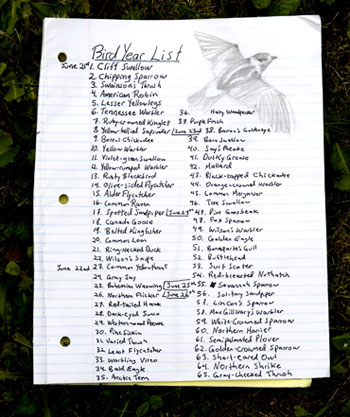 Bird Year List
June 21st 1. Cliff Swallow
2. Chipping Sparrow
3. Swainson's Thrush
4. American Robin
5. Lesser Yellowlegs
6. Tennessee Warbler
7. Ruby-crowned Kinglet
8. Yellow-bellied Sapsucker June 23rd
9. Boreal Chickadee
10. Yellow Warbler
11. Violet-green Swallow
12. Yellow-rumped Warbler
13. Rusty Blackbird
14. Olive-sided Flycatcher
15. Alder Flycatcher
16. Common Raven
17. Spotted Sandpiper
18. Canada Goose
19. Belted Kingfisher
20. Common Loon
21. Ring-Necked Duck
22. Wilson's Snipe
June 22nd 23. Common Yellowthroat
24. Gray Jay
25. Bohemian Waxwing June 25th
26. Northern Flicker June 26th
27. Red-tailed Hawk
28. Dark-eyed Junco
29. Western Wood Pewee
30. Pine Siskin
31. Varied Thrush
32. Least Flycatcher
33. Warbling Vireo
34. Bald Eagle
35. Arctic Tern
36. Hairy Woodpecker
37. Purple Finch
38. Barrow's Goldeneye
39. Barn Swallow
40. Say's Phoebe
41. Dusky Grouse
42. Mallard
43. Black-capped Chickadee
44. Orange-crowned Warbler
45. Common Merganser
46. Tree Swallow
48. Fox Sparrow
49. Wilson's Warbler
50. Golden Eagle
51. Bonaparte's Gull
52. Bufflehead
53. Surf Scoter
54. Red-breasted Nuthatch
55. Savannah Sparrow
56. Solitary Sandpiper
57. Lincoln's Sparrow
58. MacGillivray's Warbler
59. White-Crowned Sparrow
60. Northern Harrier
61. Semipalmated Plover
62. Golden-crowned Sparrow
63. Short-eared Owl
64. Northern Shrike
65. Gray-cheeked Thrush